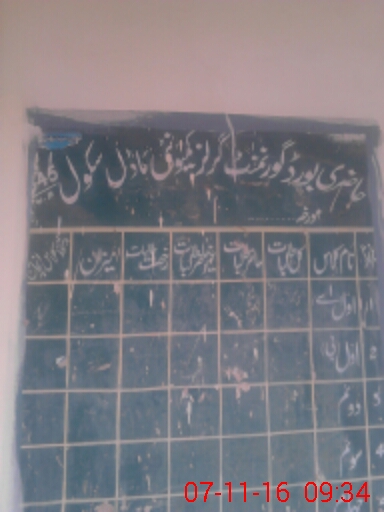 حاضری بورڈ گورنمنٹ گرلز کمیونٹی ماڈل سکول
مورخہ
نام کلاس کل طالبات حاضر طالبات غیر حاضر طالبات رخصت طالبات میزان
1 اول اے
2 اول بی
3 دوئم
4 سوئم
07-11-16 09:34